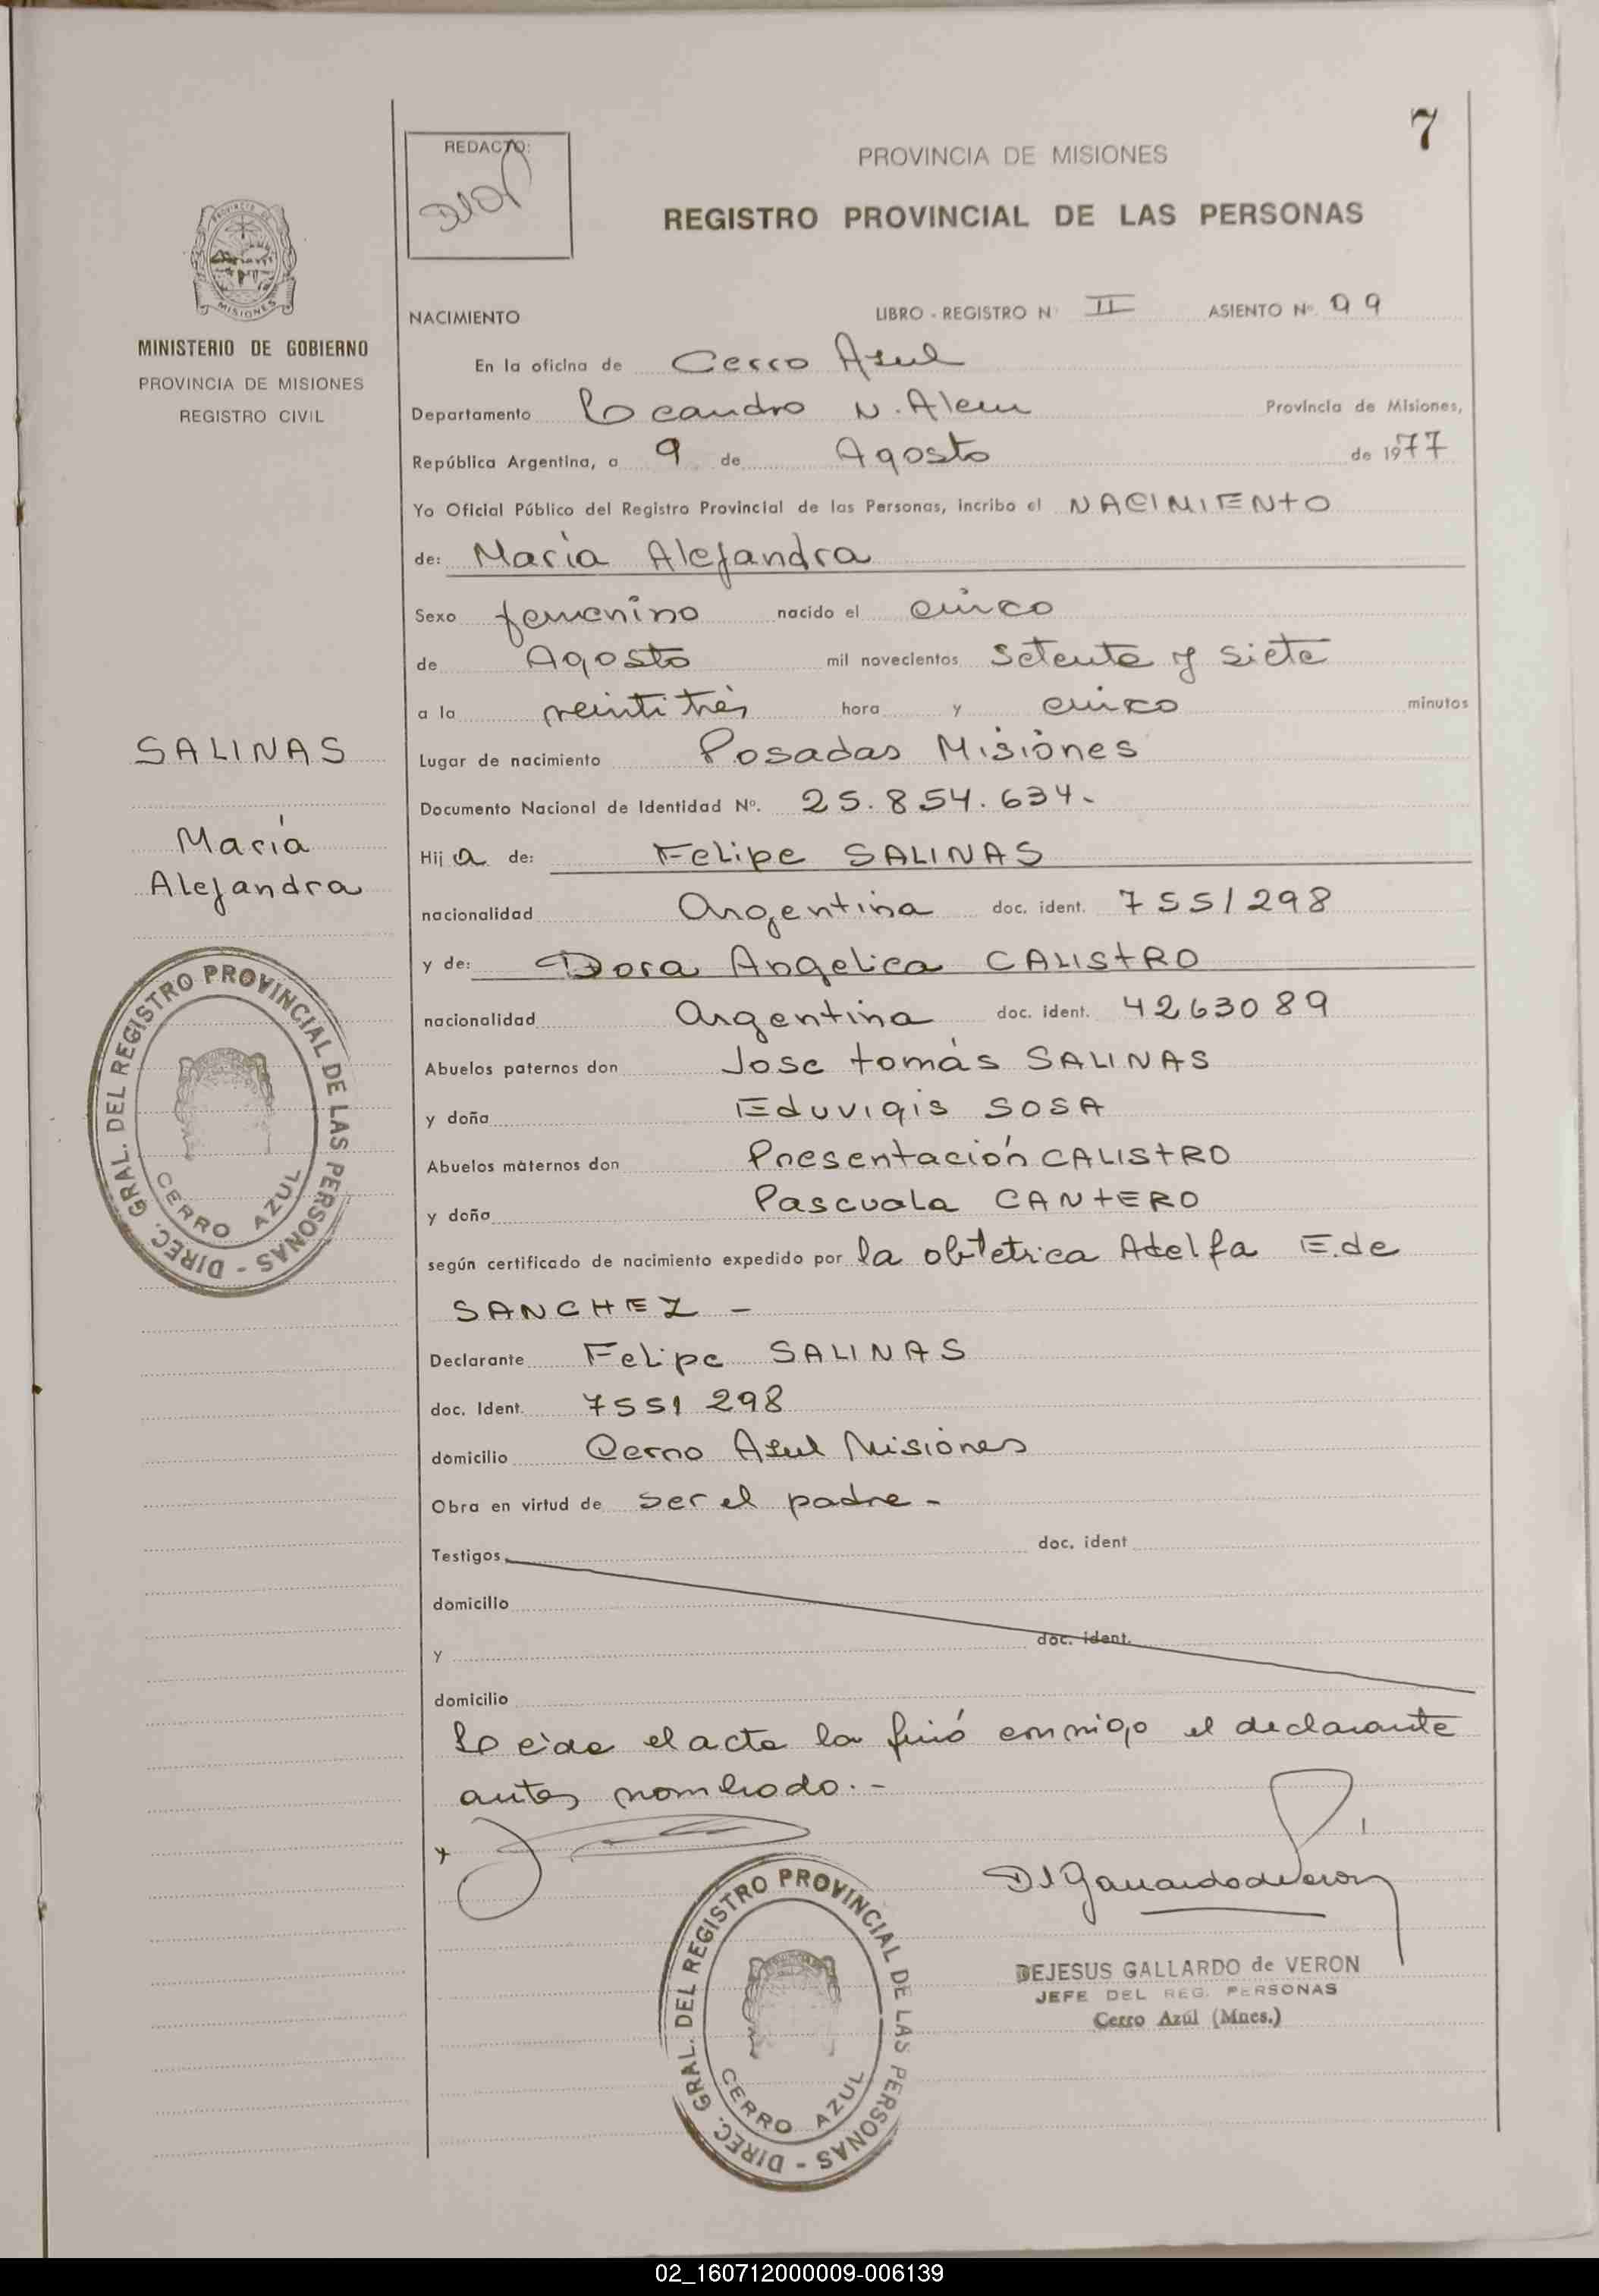 7
REDACTO:
PROVINCIA DE MISIONES
REGISTRO PROVINCIAL DE LAS PERSONAS
MISIONES
MINISTERIO DE GOBIERNO
PROVINCIA DE MISIONES
REGISTRO CIVIL
NACIMIENTO LIBRO - REGISTRO N° II ASIENTO N° 99
En la oficina de Cerro Azul
Departamento Leandro N. Alem Provincia de Misiones,
República Argentina, a 9 de Agosto de 1977
Yo Oficial Público del Registro Provincial de las Personas, incribo el NACIMIENTO
de: María Alejandra
Sexo femenino nacido el cinco
de Agosto mil novecientos setenta y siete
a la veintitrés hora y cinco minutos
SALINAS
María
Alejandra
Lugar de nacimiento Posadas Misiones
Documento Nacional de Identidad N°. 25.854.634.-
Hija de: Felipe SALINAS
nacionalidad Argentina doc. ident. 7551298
y de: Dora Angelica CALISTRO
nacionalidad Argentina doc. ident. 4263089
Abuelos paternos don Jose tomás SALINAS
y doña Eduvigis SOSA
Abuelos maternos don Presentación CALISTRO
y doña Pascuala CANTERO
según certificado de nacimiento expedido por la obstetrica Adelfa E. de
SANCHEZ -
Declarante Felipe SALINAS
doc. Ident. 7551298
domicilio Cerro Azul Misiones
Obra en virtud de ser el padre -
Testigos doc. ident
domicilio
y doc. ident.
domicilio
Leída el acta la firmó conmigo el declarante
antes nombrado.-
DIREC. GRAL. DEL REGISTRO PROVINCIAL DE LAS PERSONAS -
CERRO AZUL
DIREC. GRAL. DEL REGISTRO PROVINCIAL DE LAS PERSONAS -
CERRO AZUL
D J Gallardo de Veron
DEJESUS GALLARDO de VERON
JEFE DEL REG. PERSONAS
Cerro Azúl (Mnes.)
02_160712000009-006139